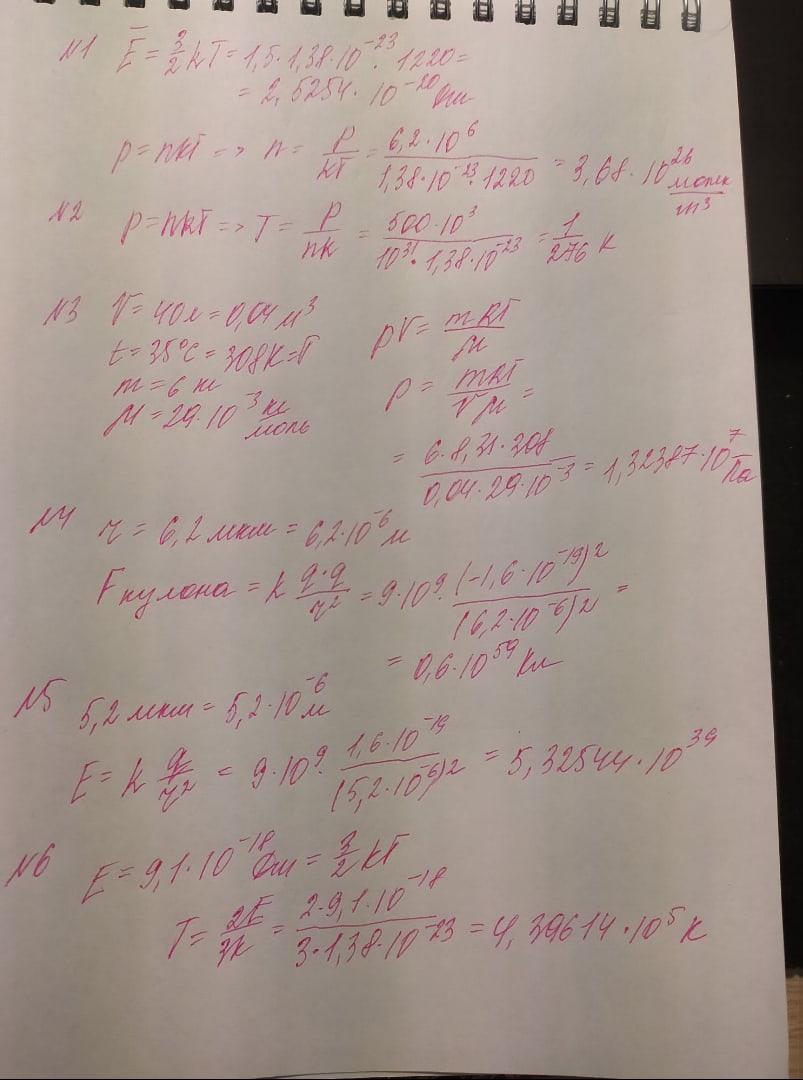 №1 E̅ = 3/2 kT = 1,5 · 1,38 · 10⁻²³ · 1220 =
= 2,5254 · 10⁻²⁰ Дж
p = nkT => n = p/kT = 6,2 · 10⁶ / 1,38 · 10⁻²³ · 1220 = 3,68 · 10²⁶ молек/m³
№2 p = nkT => T = p/nk = 500 · 10³ / 10³¹ · 1,38 · 10⁻²³ = 1/276 K
№3 V = 40 л = 0,04 м³
t = 35°C = 308K = T
m = 6 кг
M = 29 · 10⁻³ кг/моль
pV = mRT/M
p = mRT/VM =
= 6 · 8,31 · 308 / 0,04 · 29 · 10⁻³ = 1,32387 · 10⁷ Па
№4 r = 6,2 мкм = 6,2 · 10⁻⁶ м
F кулона = k q·q/r² = 9 · 10⁹ · (-1,6 · 10⁻¹⁹)² / (6,2 · 10⁻⁶)² =
= 0,6 · 10⁵⁹ Кл
№5 5,2 мкм = 5,2 · 10⁻⁶ м
E = k q/r² = 9 · 10⁹ · 1,6 · 10⁻¹⁹ / (5,2 · 10⁻⁶)² = 5,32544 · 10³⁹
№6 E = 9,1 · 10⁻¹⁸ Дж = 3/2 kT
T = 2E/3k = 2 · 9,1 · 10⁻¹⁸ / 3 · 1,38 · 10⁻²³ = 4,39614 · 10⁵ K